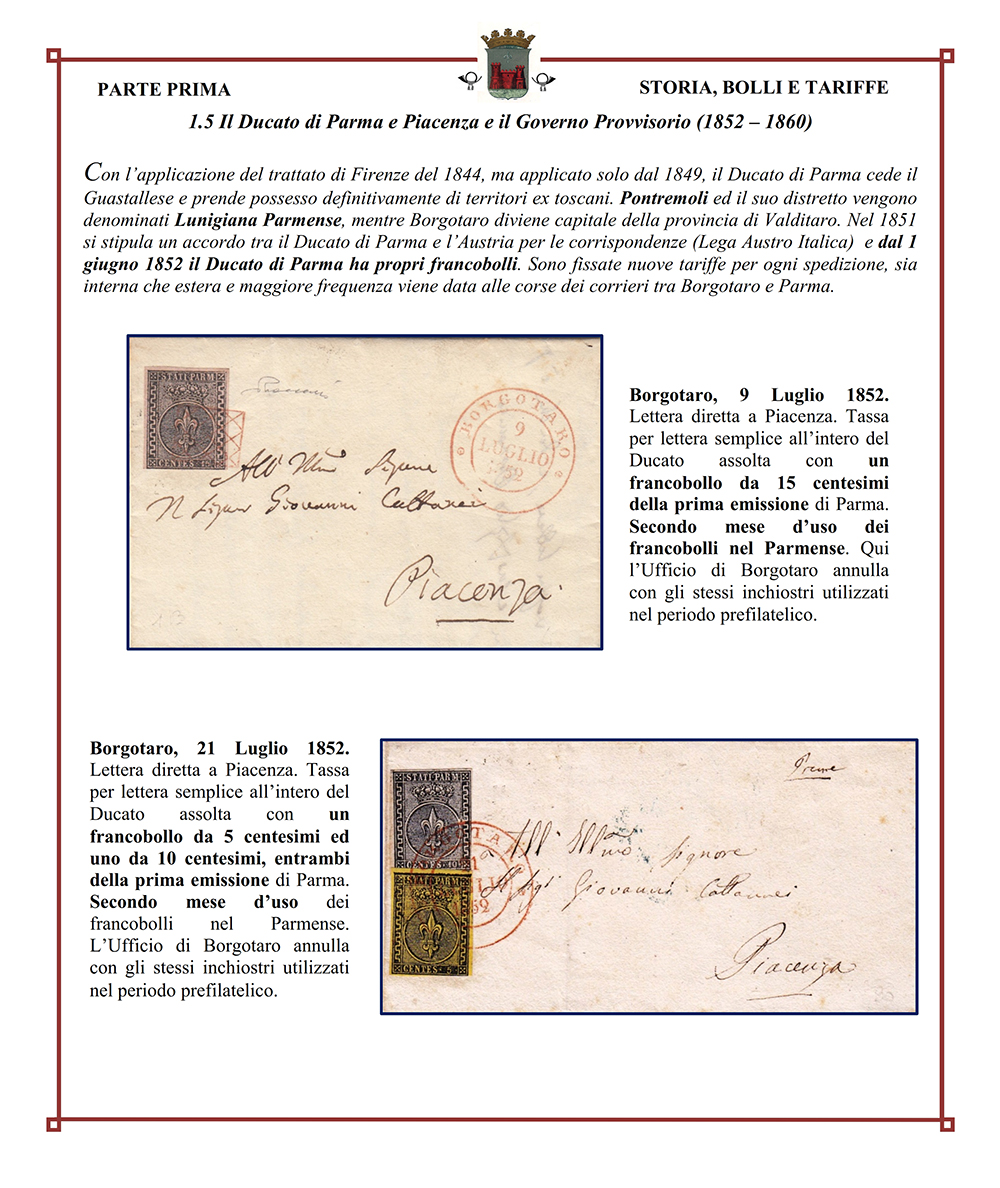 PARTE PRIMA
STORIA, BOLLI E TARIFFE
1.5 Il Ducato di Parma e Piacenza e il Governo Provvisorio (1852 – 1860)
Con l’applicazione del trattato di Firenze del 1844, ma applicato solo dal 1849, il Ducato di Parma cede il
Guastallese e prende possesso definitivamente di territori ex toscani. Pontremoli ed il suo distretto vengono
denominati Lunigiana Parmense, mentre Borgotaro diviene capitale della provincia di Valditaro. Nel 1851
si stipula un accordo tra il Ducato di Parma e l’Austria per le corrispondenze (Lega Austro Italica) e dal 1
giugno 1852 il Ducato di Parma ha propri francobolli. Sono fissate nuove tariffe per ogni spedizione, sia
interna che estera e maggiore frequenza viene data alle corse dei corrieri tra Borgotaro e Parma.
STATI PARM
CENTES 15
BORGOTARO
9
LUGLIO
52
Giovanni Cattanei
Piacenza
Borgotaro, 9 Luglio 1852.
Lettera diretta a Piacenza. Tassa
per lettera semplice all’intero del
Ducato assolta con un
francobollo da 15 centesimi
della prima emissione di Parma.
Secondo mese d’uso dei
francobolli nel Parmense. Qui
l’Ufficio di Borgotaro annulla
con gli stessi inchiostri utilizzati
nel periodo prefilatelico.
Borgotaro, 21 Luglio 1852.
Lettera diretta a Piacenza. Tassa
per lettera semplice all’intero del
Ducato assolta con un
francobollo da 5 centesimi ed
uno da 10 centesimi, entrambi
della prima emissione di Parma.
Secondo mese d’uso dei
francobolli nel Parmense.
L’Ufficio di Borgotaro annulla
con gli stessi inchiostri utilizzati
nel periodo prefilatelico.
STATI PARM
CENTES 10
CENTES 5
52
All' Illmo Signore
Giovanni Cattanei
Piacenza